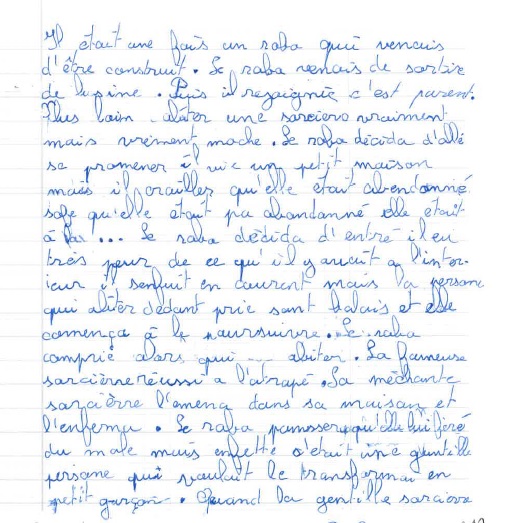 Il était une fois un roba qui venais
d'être construit. Le roba venais de sortire
de lusine. Puis il rezoignit c'est parent.
Plus loin abiter une sorciere vraiment
mais vriment moche. Le roba décida d'allé
se promener il vie un petit maison
mais il crailler qu'elle était abendonné
sofe qu'elle était pa abandonné elle était
à la... Le roba décida d'entré il eu
très peur de ce qu'il y auait a l'inter-
ieur il senfuit en courent mais la persone
qui abiter dedant prie sont balais et elle
comença à le poursuivre. Le roba
comprie alors qui abiter. La fameuse
sorcière réussi a l'atrapé. La méchante
sorcièrre l'amena dans sa maison et
l'enferma. Le roba pansser qu'elle lui feré
du male mais enfette c'était une gentille
persone qui voulait le transformai en
petit garçon. Quand la gentille sorciere